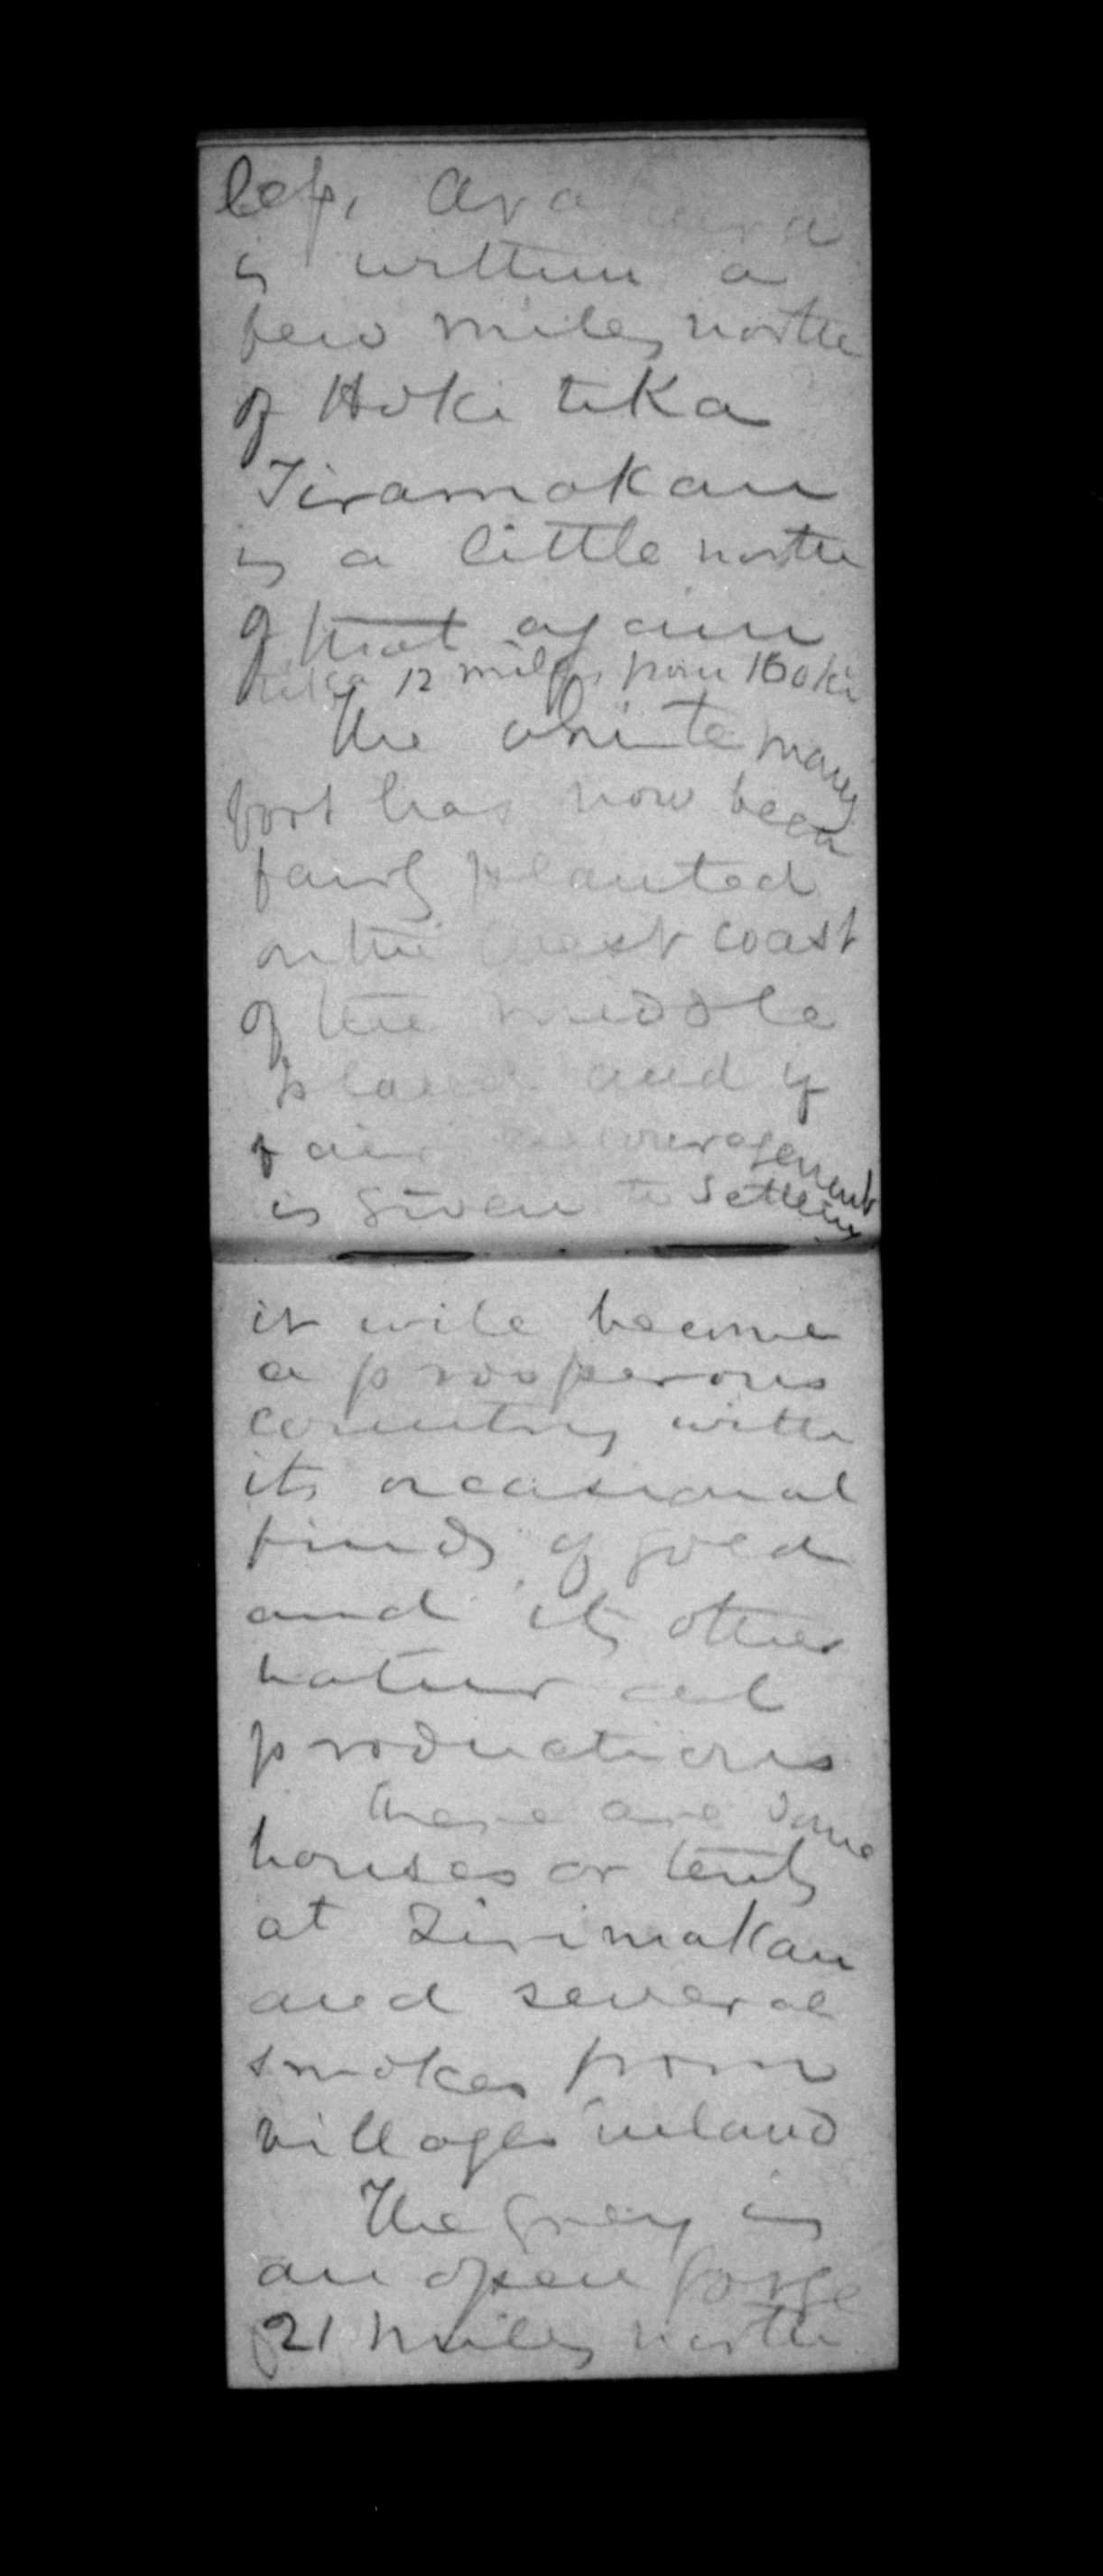 left, Arahura
is within a
few miles north
of Hokitika
Tiramakau
is a little north
of that again
tika 12 miles from Hoki
The white mans
foot has now been
fairly planted
on the West coast
of the middle
Island and if
fair encouragement
is given to settlers
it will become
a prosperous
country with
its occasional
finds of gold
and its other
natural
productions
There are some
houses or tents
at Tirimakau
and several
smokes from
villages inland
The Grey is
an open gorge
21 miles north